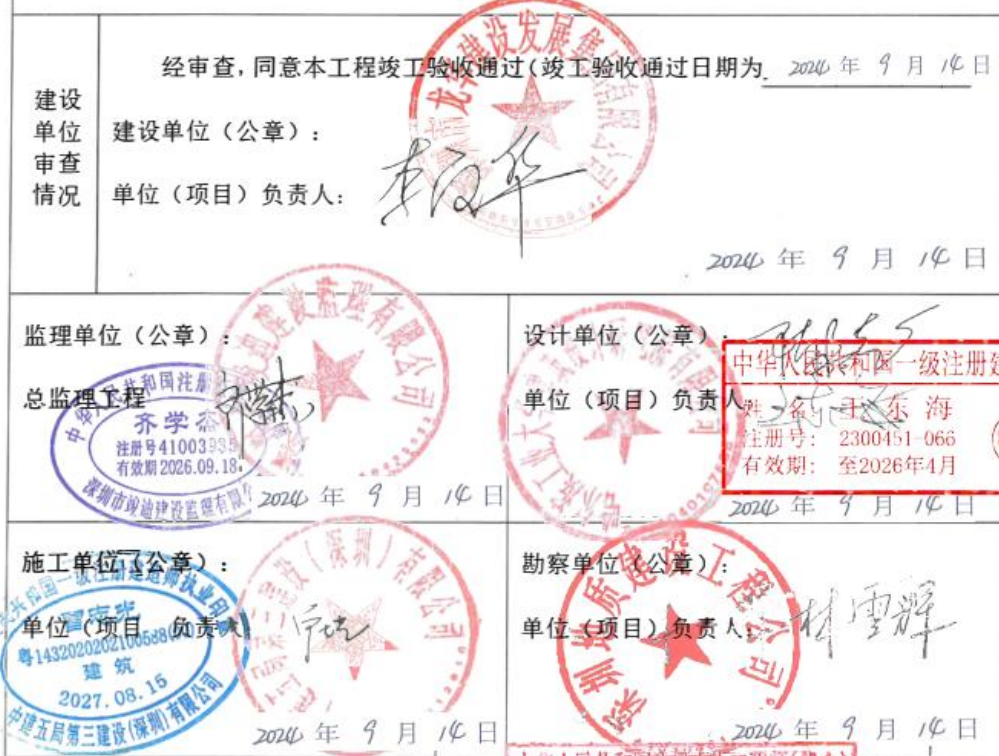 经审查，同意本工程竣工验收通过（竣工验收通过日期为 2024 年 9 月 14 日
建设
单位
审查
情况
建设单位（公章）：
单位（项目）负责人：
2024 年 9 月 14 日
监理单位（公章）：
总监理工程
齐学杰
注册号41003935
有效期2026.09.18
深圳市竣迪建设监理有限
2024 年 9 月 14 日
设计单位（公章）：
单位（项目）负责人
中华人民共和国一级注册建
姓 名： 王东海
注册号： 2300451-066
有效期： 至2026年4月
2024 年 9 月 14 日
施工单位（公章）：
单位（项目 负责
建 筑
2027.08.15
中建五局第三建设(深圳)有限公司
2024 年 9 月 14 日
勘察单位（公章）：
单位（项目）负责人：
林雪辉
深圳地质建设工程公司
2024 年 9 月 14 日